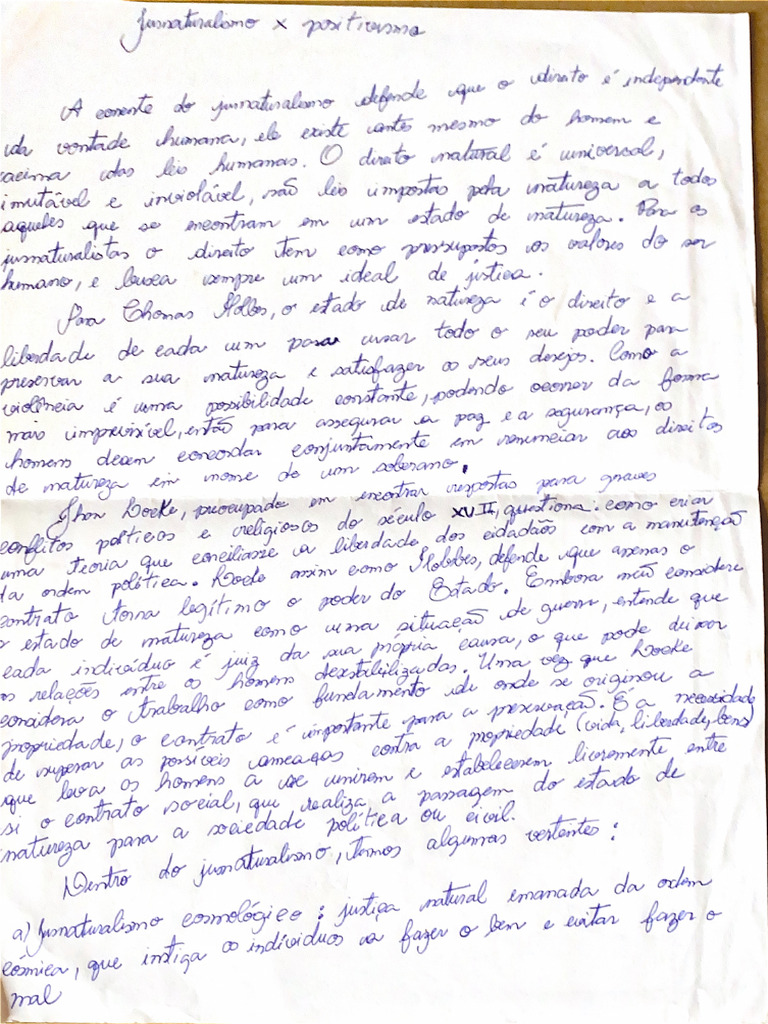 Jusnaturalismo x positivismo
A corrente do jusnaturalismo defende que o direito é independente
da vontade humana, ele existe antes mesmo do homem e
acima das leis humanas. O direito natural é universal,
imutável e inviolável, são leis impostas pela natureza a todos
aqueles que se encontram em um estado de natureza. Para os
jusnaturalistas o direito tem como pressupostos os valores do ser
humano, e busca sempre um ideal de justiça.
Para Thomas Hobbes, o estado de natureza é o direito e a
liberdade de cada um para usar todo o seu poder para
preservar a sua natureza e satisfazer os seus desejos. Como a
violência é uma possibilidade constante, podendo ocorrer da forma
mais imprevisível, então para assegurar a paz e a segurança, os
homens devem concordar conjuntamente em renunciar aos direitos
de natureza em nome de um soberano.
Jhon Locke, preocupado em encontrar respostas para graves
conflitos políticos e religiosos do século XVII, questiona: como criar
uma teoria que conciliasse a liberdade dos cidadãos com a manutenção
da ordem política. Locke assim como Hobbes, defende que apenas o
contrato torna legítimo o poder do Estado. Embora não considere
o estado de natureza como uma situação de guerra, entende que
cada indivíduo é juiz da sua própria causa, o que pode deixar
as relações entre os homens desestabilizadas. Uma vez que Locke
considera o trabalho como fundamento de onde se originou a
propriedade, o contrato é importante para a preservação. É a necessidade
de superar as possíveis ameaças contra a propriedade (vida, liberdade, bens)
que leva os homens a se unirem e estabelecerem livremente entre
si o contrato social, que realiza a passagem do estado de
natureza para a sociedade política ou civil.
Dentro do jusnaturalismo, temos algumas vertentes:
a) Jusnaturalismo cosmológico: justiça natural emanada da ordem
cósmica, que instiga os indivíduos a fazer o bem e evitar fazer o
mal